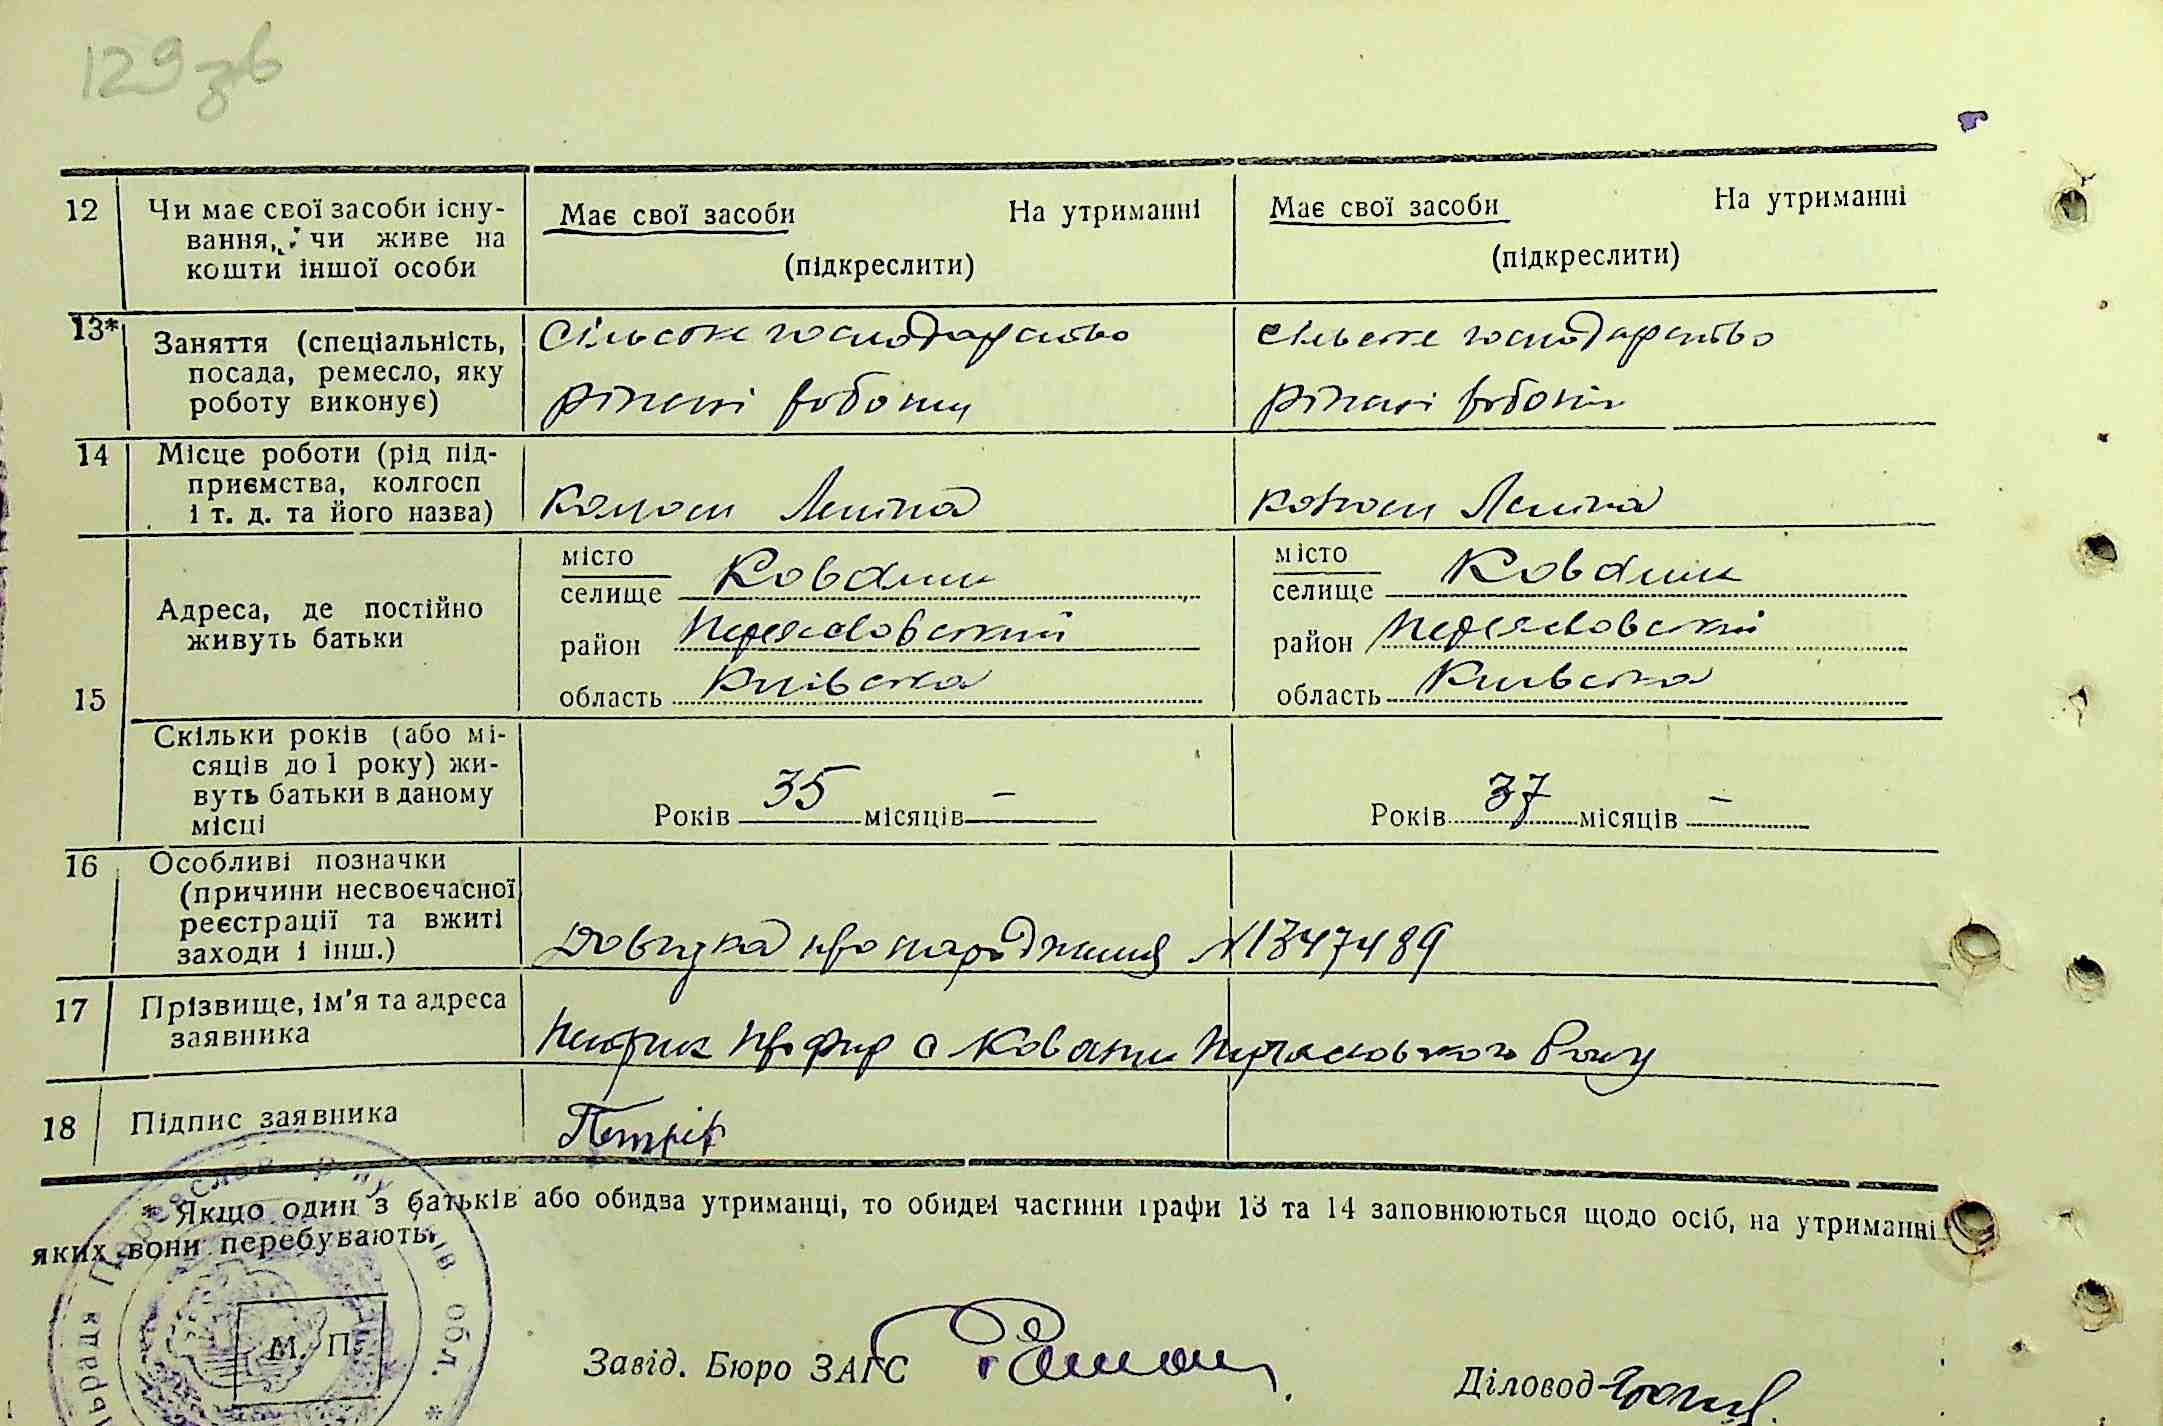 129 зв
12 Чи має свої засоби існу- Має свої засоби На утриманні Має свої засоби На утриманні
вання, чи живе на
кошти іншої особи (підкреслити) (підкреслити)
13* Заняття (спеціальність, Сільське господарство сільське господарство
посада, ремесло, яку
роботу виконує) різні роботи різні роботи
14 Місце роботи (рід під-
приємства, колгосп
і т. д. та його назва) колгосп Леніна колгосп Леніна
15 Адреса, де постійно
живуть батьки
місто місто
селище Ковалин селище Ковалин
район Переяславський район Переяславський
область Київська область Київська
Скільки років (або мі-
сяців до 1 року) жи-
вуть батьки в даному
місці Років 35 місяців – Років 37 місяців –
16 Особливі позначки
(причини несвоєчасної
реєстрації та вжиті
заходи і інш.) Довідка про народження N 1347489
17 Прізвище, ім'я та адреса
заявника Петрик с Ковалин Переяславського р-ну
18 Підпис заявника Петрік
* Якщо один з батьків або обидва утриманці, то обидві частини графи 13 та 14 заповнюються щодо осіб, на утриманні
яких вони перебувають.
М. П.
Завід. Бюро ЗАГС
Діловод